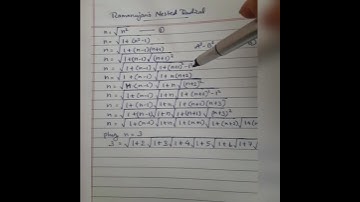 Ramanujan's Nested Radical
n = √n² —— ①
n = √1+(n²-1)
n = √1+(n-1)(n+1)
n = √1+(n-1)√(n+1)²
n = √1+(n-1)√1+(n+1)²-1²
n = √1+(n-1)√1+n(n+2)
n = √1+(n-1)√1+n√(n+2)²
n = √1+(n-1)√1+n√1+(n+2)²-1²
n = √1+(n-1)√1+n√1+(n+1)(n+3)
n = √1+(n-1)√1+n√1+(n+1)√(n+3)²
n = √1+(n-1)√1+n√1+(n+1)√1+(n+2)√1+(n+
n = 3
3 = √1+2√1+3√1+4√1+5√1+6√1+7√